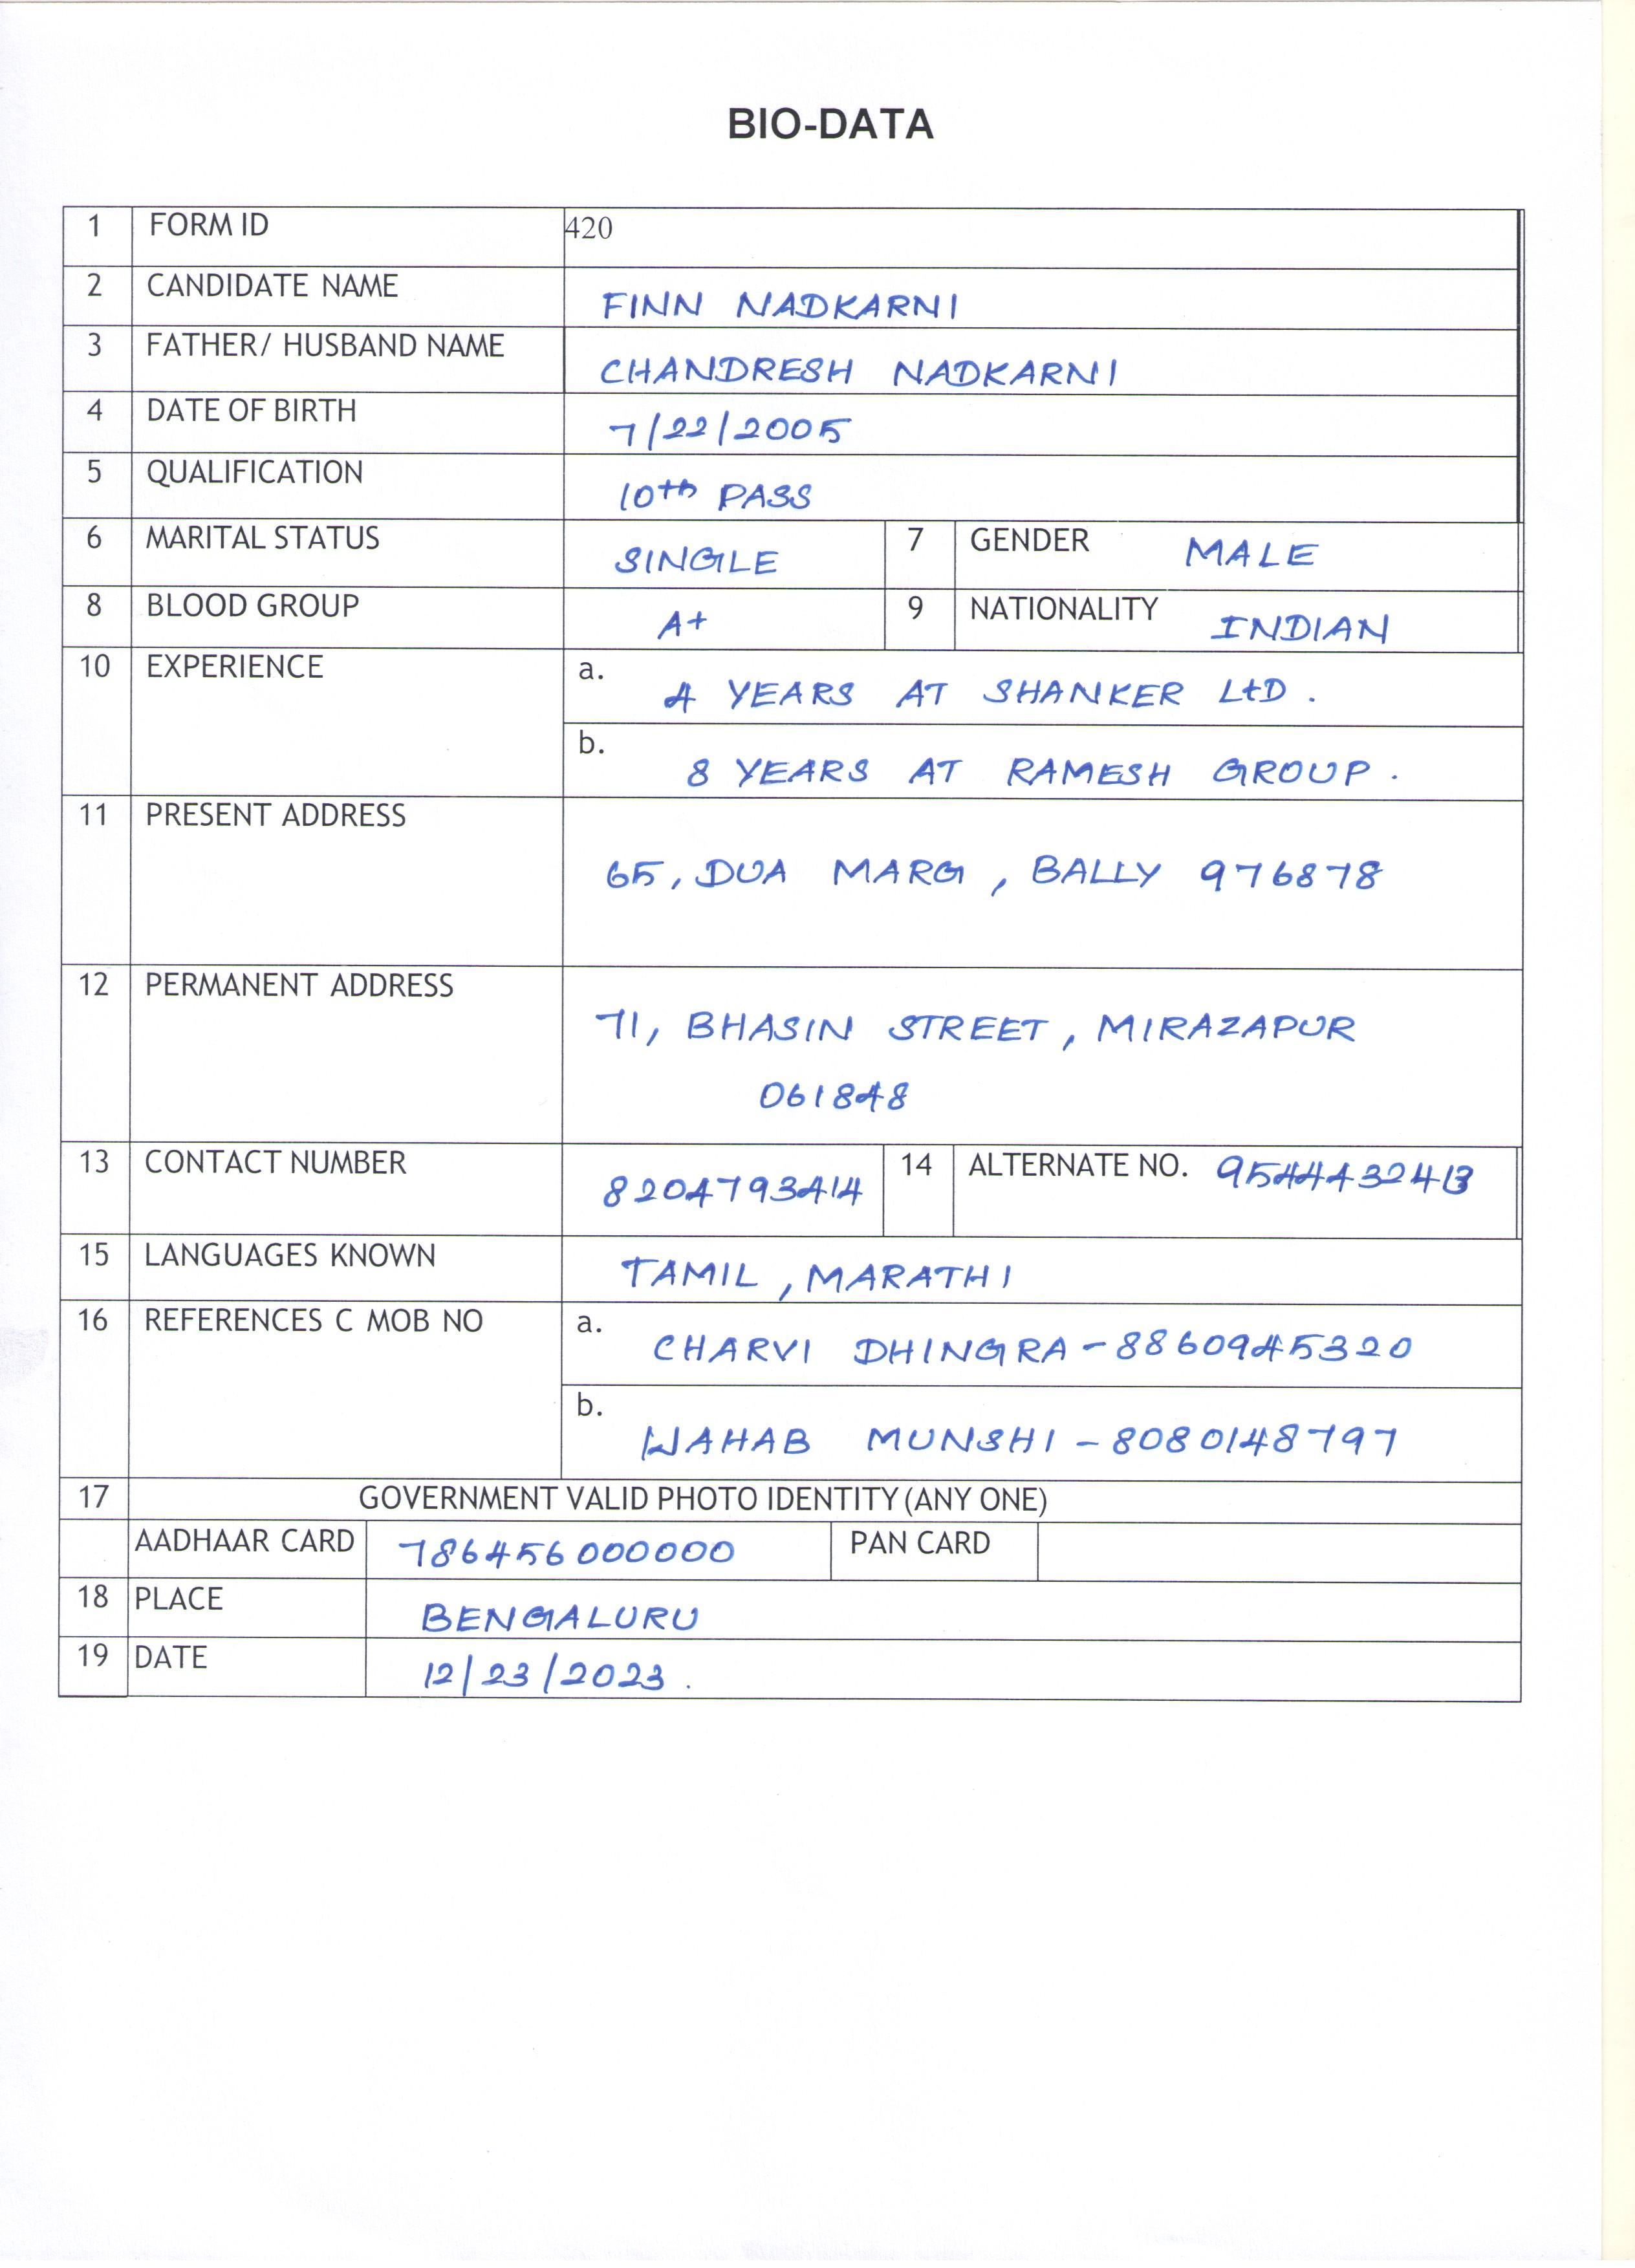 BIO-DATA
1 FORM ID 420
2 CANDIDATE NAME FINN NADKARNI
3 FATHER/ HUSBAND NAME CHANDRESH NADKARNI
4 DATE OF BIRTH 7/22/2005
5 QUALIFICATION 10th PASS
6 MARITAL STATUS SINGLE 7 GENDER MALE
8 BLOOD GROUP A+ 9 NATIONALITY INDIAN
10 EXPERIENCE a. 4 YEARS AT SHANKER LtD .
b. 8 YEARS AT RAMESH GROUP .
11 PRESENT ADDRESS
65, DUA MARG , BALLY 976878
12 PERMANENT ADDRESS
71, BHASIN STREET , MIRAZAPUR
061848
13 CONTACT NUMBER 8204793414 14 ALTERNATE NO. 9544432413
15 LANGUAGES KNOWN TAMIL , MARATHI
16 REFERENCES C MOB NO a. CHARVI DHINGRA - 8860945320
b. WAHAB MUNSHI - 8080148797
17 GOVERNMENT VALID PHOTO IDENTITY (ANY ONE)
AADHAAR CARD 786456000000 PAN CARD
18 PLACE BENGALURU
19 DATE 12/23/2023 .